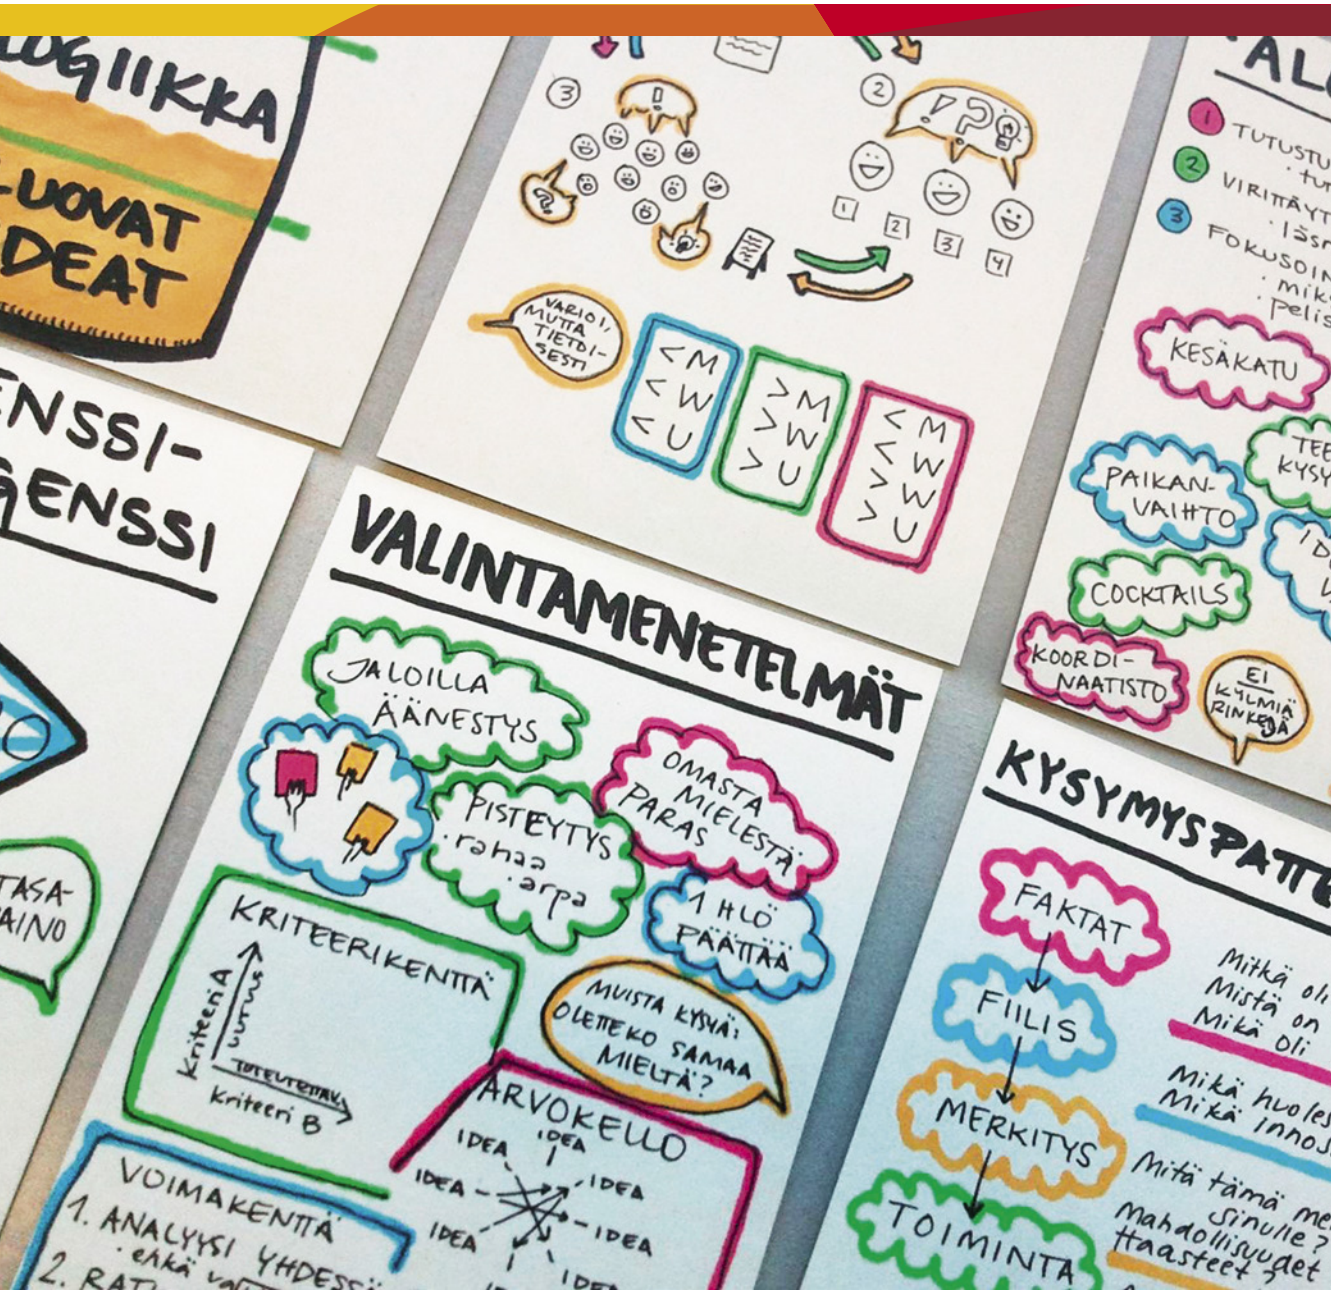 LOGIIKKA
LUOVAT
IDEAT
3
!
2
! ?
?
1
2
3
4
VARIOI,
MUTTA
TIETOI-
SESTI
< M
< W
< U
> M
> W
> U
< M
< W
> W
> U
1 TUTUSTU
2 VIRITTÄYT
3 FOKUSOIN
KESÄKATU
TEE
KYSY
PAIKAN-
VAIHTO
COCKTAILS
KOORDI-
NAATISTO
EI
KYLMIÄ
RINKEJÄ
ENSSI-
GENSSI
TASA-
PAINO
VALINTAMENETELMÄT
JALOILLA
ÄÄNESTYS
PISTEYTYS
· rahaa
· arpa
OMASTA
MIELESTÄ
PARAS
1 HLÖ
PÄÄTTÄÄ
KRITEERIKENTTÄ
Kriteeri A
UUTUUS
TOTEUTETTAV.
Kriteeri B
MUISTA KYSYÄ:
OLETTEKO SAMAA
MIELTÄ?
ARVOKELLO
IDEA
IDEA
IDEA
IDEA
IDEA
IDEA
IDEA
VOIMAKENTTÄ
1. ANALYYSI YHDESSÄ
· ehkä
2.
KYSYMYSPATTE
FAKTAT
FIILIS
MERKITYS
TOIMINTA
Mitkä oli
Mistä on
Mikä oli
Mikä huoles
Mikä innos
Mitä tämä me
sinulle?
Mahdollisuudet
Haasteet?